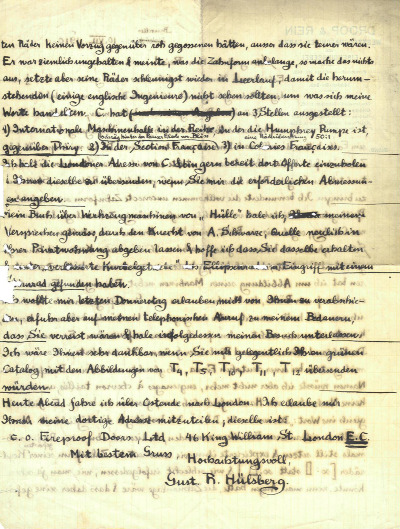 ten Räder keinen Vorzug gegenüber roh gegossenen hätten, ausser dass sie teuer wären.
Er war ziemlich ungehalten & meinte, was die Zahnform anbelange, so mache das nichts
aus, setzte aber seine Räder schleunigst wieder in Leerlauf, damit die herum-
stehenden (einige englische Ingenieure) nicht sehen sollten, um was sich meine
Worte handelten. C. hat an 3 Stellen ausgestellt:
1) Internationale Maschinenhalle in der Reihe in der die Humphrey Pumpe ist,
gegenüber Thiry. 2) In der Section Française 3) in Col Français.
Ich hielt die Adresse von C. gern bereit dort Offerte einzuholen
& Ihnen dieselbe zu übersenden, wenn Sie mir die erforderlichen Abmessun-
gen angeben.
Mein Buch über Werkzeugmaschinen von "Hülle" habe ich meinem
Versprechen gemäss durch den Knecht von A. Schwarze, Quelle neulich in
Ihrer Privatwohnung abgeben lassen & hoffe ich dass Sie dasselbe erhalten
Eingriff mit einem
gefunden haben.
Ich wollte mir letzten Donnerstag erlauben mich von Ihnen zu verabschie-
den, erfuhr aber auf meinen telephonischen Anruf zu meinem Bedauern,
dass Sie verreist wären & habe infolgedessen meinen Besuch unterlassen.
Ich wäre Ihnen sehr dankbar, wenn Sie mir gelegentlich Ihren grünen
Catalog mit den Abbildungen von T4, T5, T10, T11, T12 übersenden
würden.
Heute Abend fahre ich über Ostende nach London & ich erlaube mir
Ihnen meine dortige Adresse mitzuteilen; dieselbe ist:
c.o. Fireproof Doors Ltd 46 King William St. London E.C.
Mit bestem Gruss
Hochachtungsvoll
Gust. R. Hülsberg.